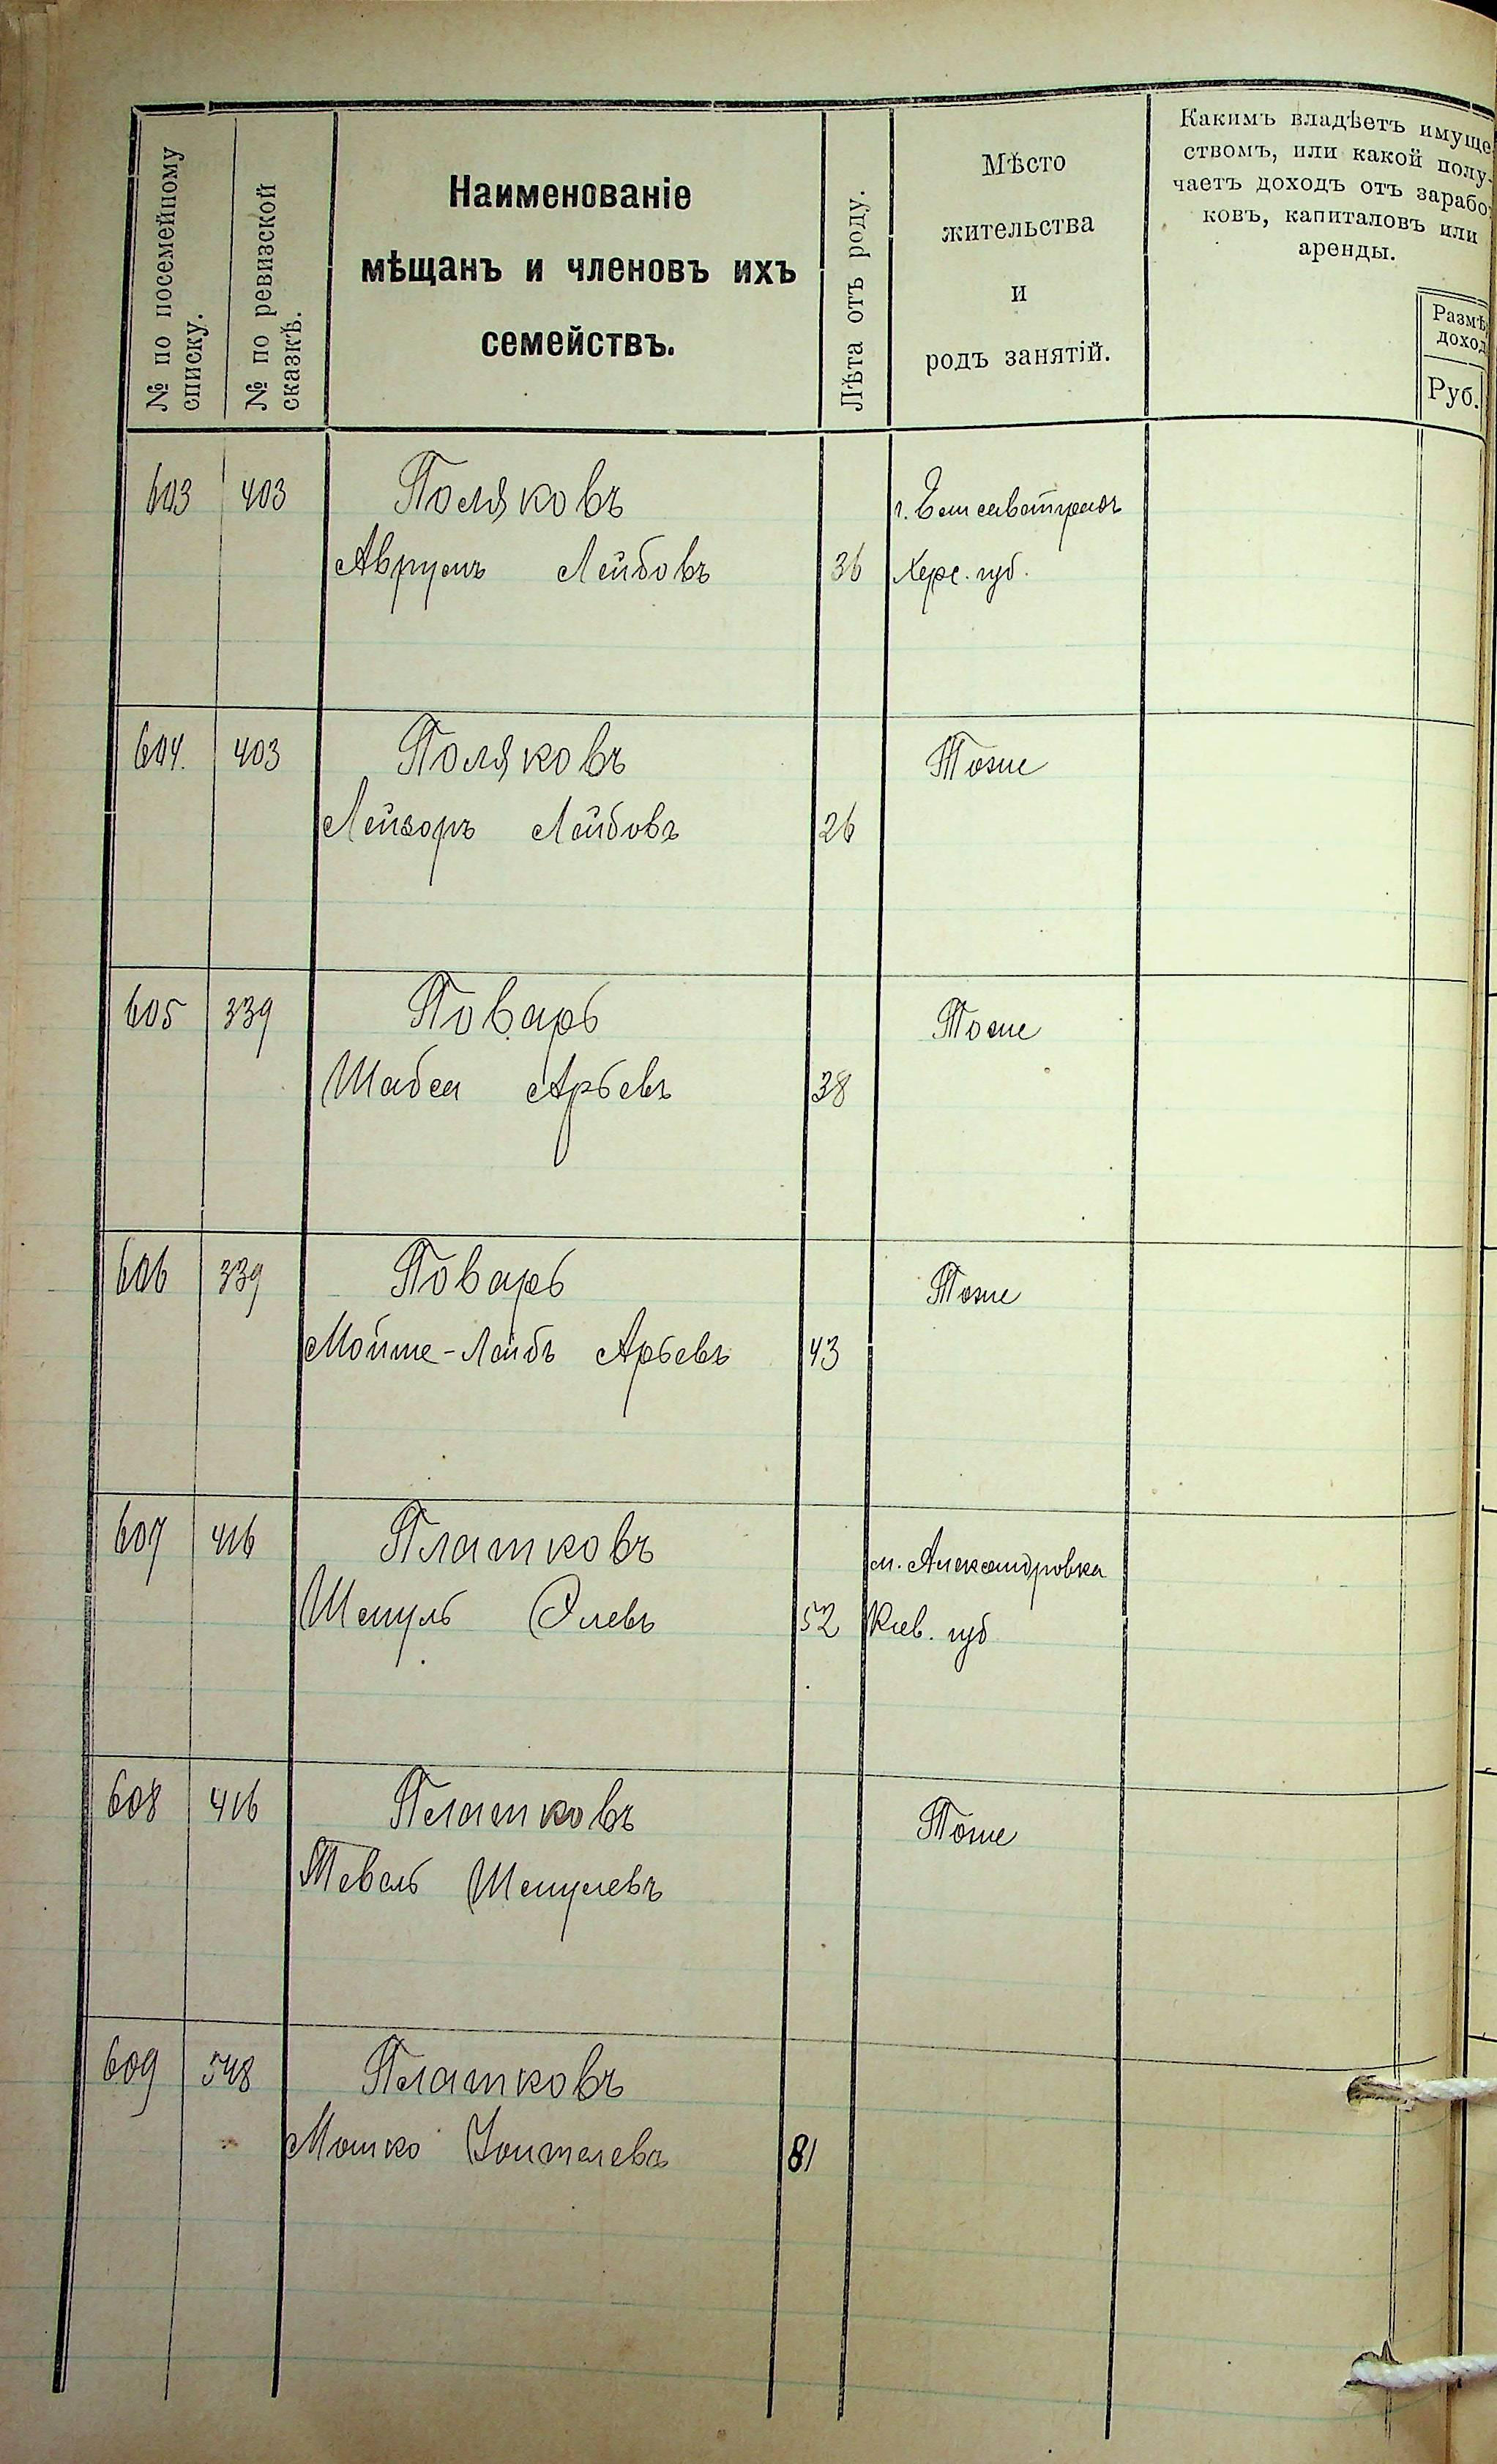 № по посемейному
списку.
№ по ревизской
сказкѣ.
Наименованіе
мѣщанъ и членовъ ихъ
семействъ.
Лѣта отъ роду.
Мѣсто
жительства
и
родъ занятій.
Какимъ владѣетъ имуще
ствомъ, или какой полу-
чаетъ доходъ отъ зарабо
ковъ, капиталовъ или
аренды.
Размѣ
доход
Руб.
603 403 Поляковъ г. Елисаветградъ
Аврумъ Лейбовъ 36 Херс. губ.
604. 403 Поляковъ Тоже
Лейзоръ Лейбовъ 26
605 339 Поваръ Тоже
Шабса Арьевъ 38
606 339 Поваръ Тоже
Мойше-Лейбъ Арьевъ 43
607 416 Платковъ м. Александровка
Шмуль 52 Кіев. губ
608 416 Платковъ Тоже
Тевель Шмулевъ
609 548 Платковъ
Мошко 81